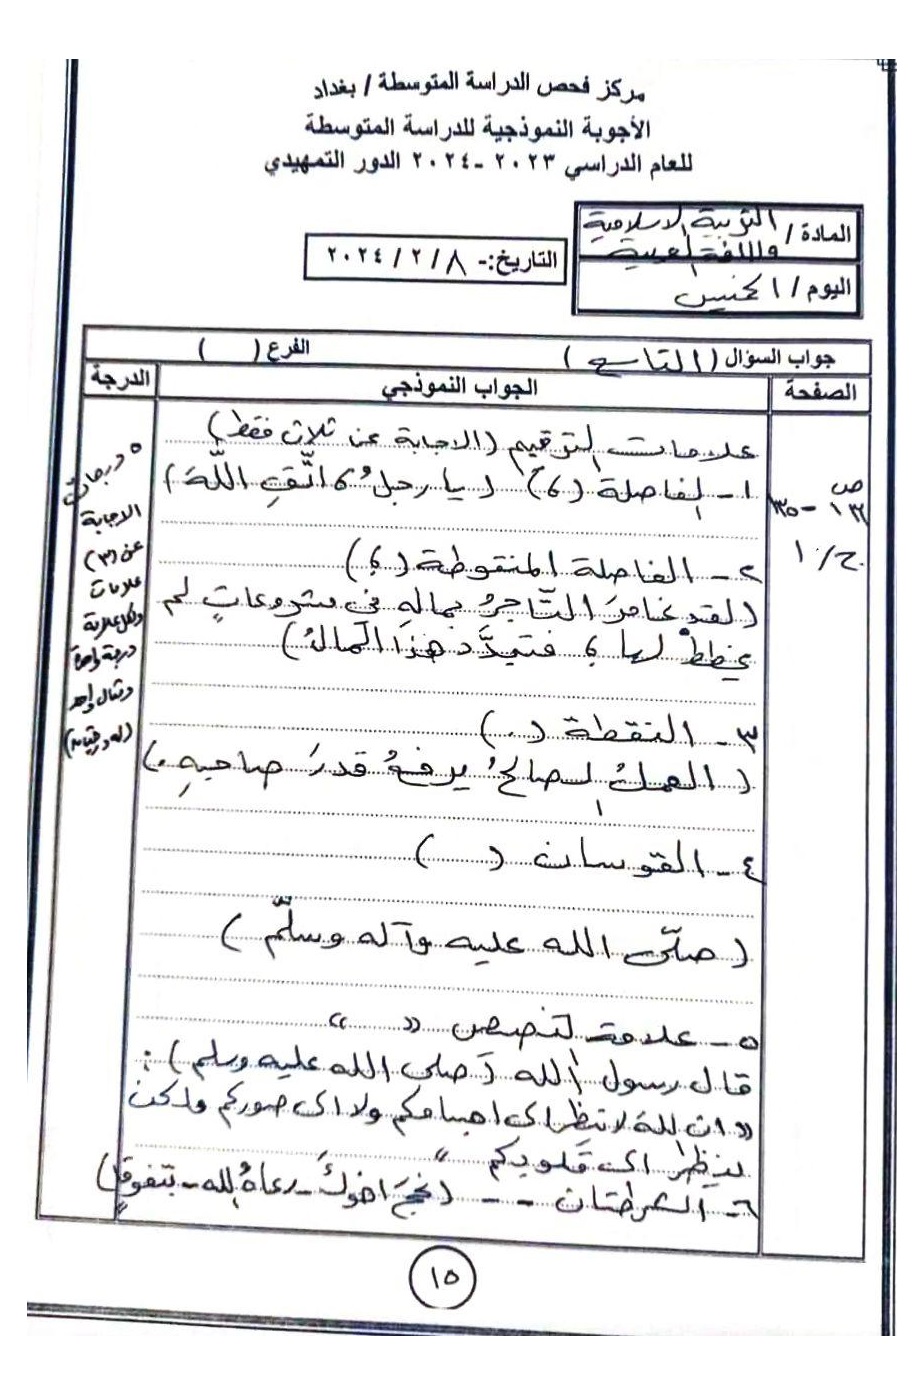 مركز فحص الدراسة المتوسطة / بغداد
الأجوبة النموذجية للدراسة المتوسطة
للعام الدراسي ٢٠٢٣ - ٢٠٢٤ الدور التمهيدي
المادة / التربية الاسلامية
واللغة العربية
التاريخ:- ٨ / ٢ / ٢٠٢٤
اليوم / الخميس
جواب السؤال ( التاسع ) الفرع ( )
الصفحة الجواب النموذجي الدرجة
علامات الترقيم (الاجابة عن ثلاث فقط)
١- الفاصلة (،) (يا رجلُ، اتَّقِ اللَّهَ)
٢- الفاصلة المنقوطة (؛)
(لقد غامرَ التّاجرُ بمالهِ في مشروعاتٍ لم
يخططْ لها؛ فتبدَّدَ هذا المالُ)
٣- النقطة (.)
(العملُ الصالحُ يرفعُ قدرَ صاحبهِ.)
٤- القوسان ( )
(صلّى الله عليه وآله وسلّم)
٥- علامة التنصيص « »
قال رسول الله (صلى الله عليه وسلم):
«ان الله لا ينظر الى اجسامكم ولا الى صوركم ولكن
ينظر الى قلوبكم»
٦- الشرطتان - - (نجحَ اخوكَ - رعاهُ الله - بتفوقٍ)
ص
ح/١
٥ درجات
الاجابة
عن (٣)
علامات
ولكل علامة
درجة واحدة
ومثال واحد
(له درجتان)
١٥